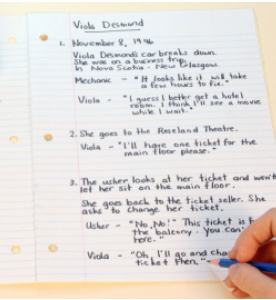 Viola Desmond
1. November 8, 1946
Viola Desmond's car breaks down.
She was on a business trip
in Nova Scotia - New Glasgow.
Mechanic - "It looks like it will take
a few hours to fix."
Viola - "I guess I better get a hotel
room. I think I'll see a movie
while I wait."
2. She goes to the Roseland Theatre.
Viola - "I'll have one ticket for the
main floor please."
3. The usher looks at her ticket and won't
let her sit on the main floor.
She goes back to the ticket seller. She
asks to change her ticket.
Usher - "No, No! This ticket is f
the balcony - you can'
here."
Viola - "Oh, I'll go and cha
ticket then."